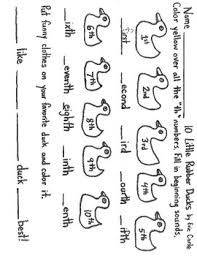 Name
10 Little Rubber Ducks by Eric Carle
Color yellow over all the "th" numbers. Fill in beginning sounds.
1st 2nd 3rd 4th 5th
__econd __ird __ourth __ifth
6th 7th 8th 9th 10th
__ixth __eventh __eighth __inth __enth
Put funny clothes on your favorite duck and color it.
____ like ____ duck ____ best!